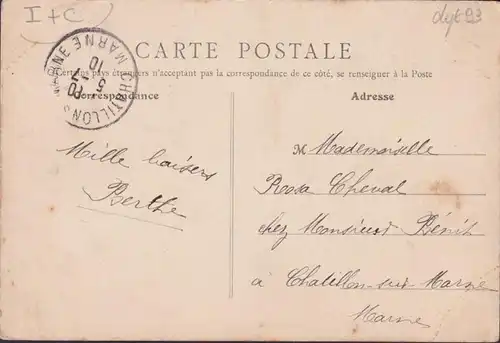 I + C
CARTE POSTALE
(Certains pays étrangers n'acceptant pas la correspondance de ce côté, se renseigner à la Poste
CHATILLON-MARNE MARNE
10
5 -7
Correspondance
Adresse
Mille baisers
Berthe
M Mademoiselle
Rosa Cheval
chez Monsieur Bénit
à Chatillon-sur-Marne
Marne